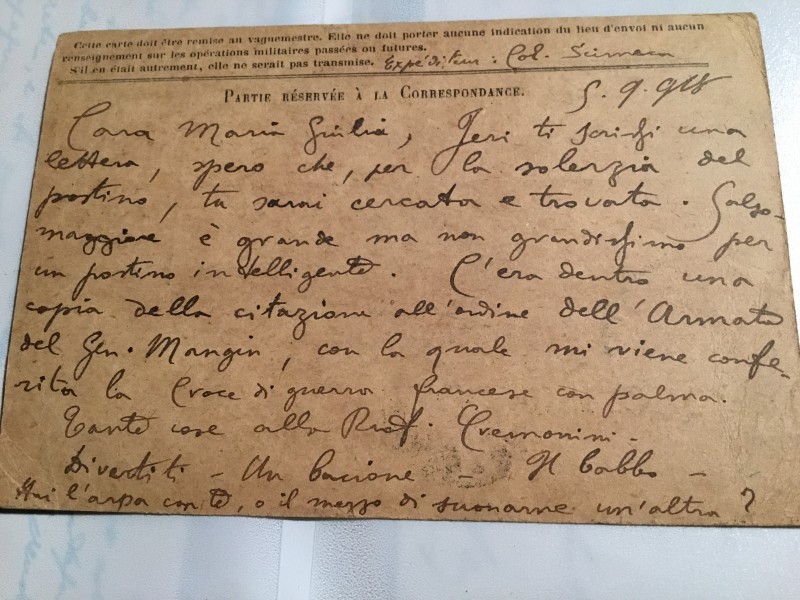 Cette carte doit être remise au vaguemestre. Elle ne doit porter aucune indication du lieu d'envoi ni aucun
renseignement sur les opérations militaires passées ou futures.
S'il en était autrement, elle ne serait pas transmise. Expéditeur : Col. Scimeca
PARTIE RÉSERVÉE À LA CORRESPONDANCE.
5. 9. 918
Cara Maria Giulia, Jeri ti scrissi una
lettera, spero che, per la solerzia del
postino, tu sarai cercata e trovata. Salso-
maggiore è grande ma non grandissimo per
un postino intelligente. C'era dentro una
copia della citazione all'ordine dell'Armata
del Gen. Mangin, con la quale mi viene confe-
rita la Croce di guerra francese con palma.
Tante cose alla Prof. Cremonini -
Divertiti - Un bacione - Il babbo -
Hai l'arpa con te, o il mezzo di suonarne un'altra ?